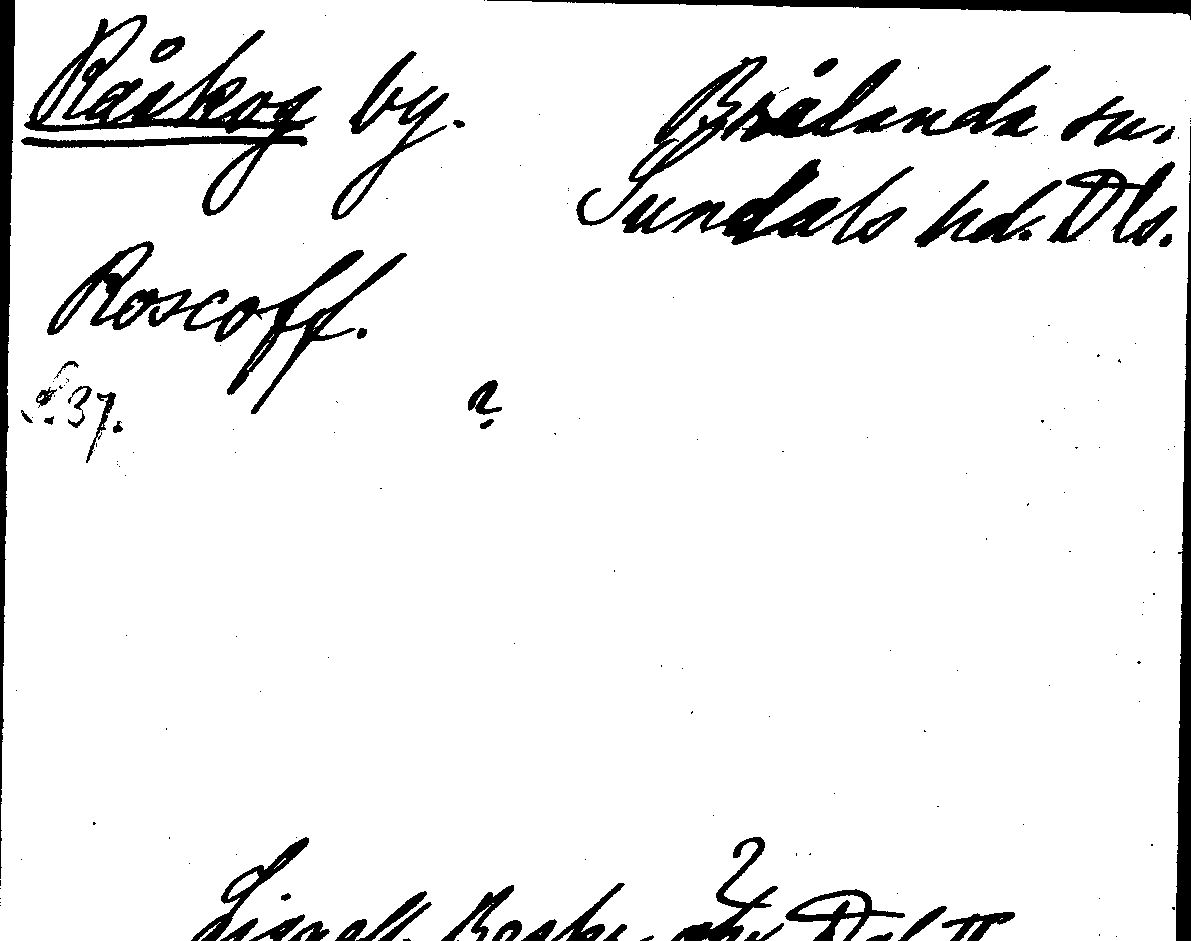 Råskog by.
Brålanda sn.
Sundals hd. Dls.
Roscoff.
S. 37.
?
Lignell, Beskr. öfver Dal II